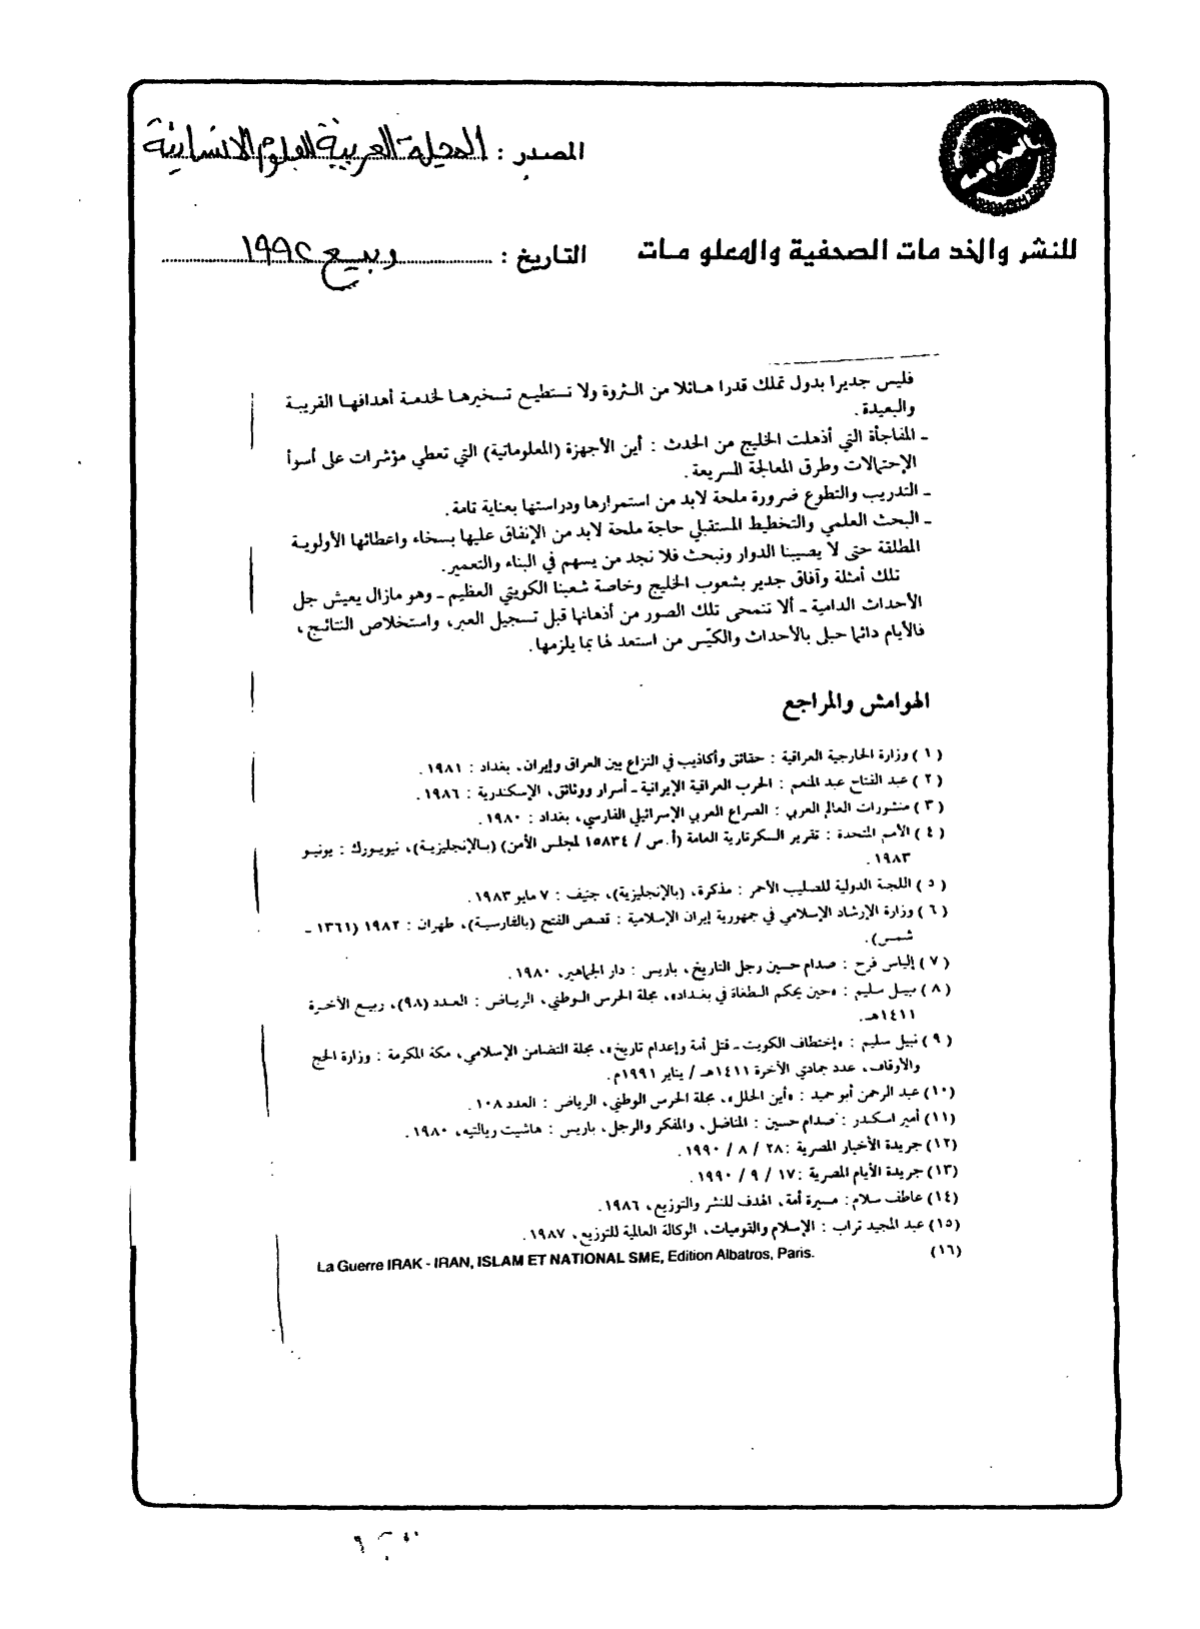 المصدر : المجلة العربية للعلوم الانسانية
للنشر والخدمات الصحفية والمعلومات
التاريخ : ربيع ١٩٩٢
فليس جديرا بدول تملك قدرا هائلا من الثروة ولا تستطيع تسخيرها لخدمة أهدافها القريبة
والبعيدة .
ـ المفاجأة التي أذهلت الخليج من الحدث : أين الأجهزة (المعلوماتية) التي تعطي مؤشرات على أسوأ
الإحتمالات وطرق المعالجة السريعة .
ـ التدريب والتطوع ضرورة ملحة لابد من استمرارها ودراستها بعناية تامة .
ـ البحث العلمي والتخطيط المستقبلي حاجة ملحة لابد من الإنفاق عليها بسخاء واعطائها الأولوية
المطلقة حتى لا يصيبنا الدوار ونبحث فلا نجد من يسهم في البناء والتعمير .
تلك أمثلة وآفاق جدير بشعوب الخليج وخاصة شعبنا الكويتي العظيم ـ وهو مازال يعيش جل
الأحداث الدامية ـ ألا تنمحى تلك الصور من أذهانها قبل تسجيل العبر، واستخلاص النتائج ،
فالأيام دائما حبلى بالأحداث والكيّس من استعد لها بما يلزمها .
الهوامش والمراجع
( ١ ) وزارة الخارجية العراقية : حقائق وأكاذيب في النزاع بين العراق وإيران، بغداد : ١٩٨١ .
( ٢ ) عبد الفتاح عبد المنعم : الحرب العراقية الإيرانية ـ أسرار ووثائق، الإسكندرية : ١٩٨٦ .
( ٣ ) منشورات العالم العربي : الصراع العربي الإسرائيلي الفارسي، بغداد : ١٩٨٠ .
( ٤ ) الأمم المتحدة : تقرير السكرتارية العامة (أ.س / ١٥٨٣٤ لمجلس الأمن) (بالإنجليزية)، نيويورك : يونيو
١٩٨٣ .
( ٥ ) اللجنة الدولية للصليب الأحمر : مذكرة، (بالإنجليزية)، جنيف : ٧ مايو ١٩٨٣ .
( ٦ ) وزارة الإرشاد الإسلامي في جمهورية إيران الإسلامية : قصص الفتح (بالفارسية)، طهران : ١٩٨٢ (١٣٦١ ـ
شمس).
( ٧ ) إلياس فرح : صدام حسين رجل التاريخ، باريس : دار الجماهير، ١٩٨٠ .
( ٨ ) نبيل سليم : «حين يحكم الطغاة في بغداد»، مجلة الحرس الوطني، الرياض : العدد (٩٨)، ربيع الآخرة
١٤١١هـ.
( ٩ ) نبيل سليم : «إختطاف الكويت ـ قتل أمة وإعدام تاريخ»، مجلة التضامن الإسلامي، مكة المكرمة : وزارة الحج
والأوقاف، عدد جمادي الآخرة ١٤١١هـ / يناير ١٩٩١م.
(١٠) عبد الرحمن أبو حميد : «أين الخلل»، مجلة الحرس الوطني، الرياض : العدد ١٠٨ .
(١١) أمير اسكندر : صدام حسين : المناضل، والمفكر والرجل، باريس : هاشيت ريالتيه، ١٩٨٠ .
(١٢) جريدة الأخبار المصرية :٢٨ / ٨ / ١٩٩٠ .
(١٣) جريدة الأيام المصرية :١٧ / ٩ / ١٩٩٠ .
(١٤) عاطف سلام : مسيرة أمة، الهدف للنشر والتوزيع، ١٩٨٦ .
(١٥) عبد المجيد تراب : الإسلام والقوميات، الوكالة العالمية للتوزيع، ١٩٨٧ .
(١٦) La Guerre IRAK - IRAN, ISLAM ET NATIONAL SME, Edition Albatros, Paris.